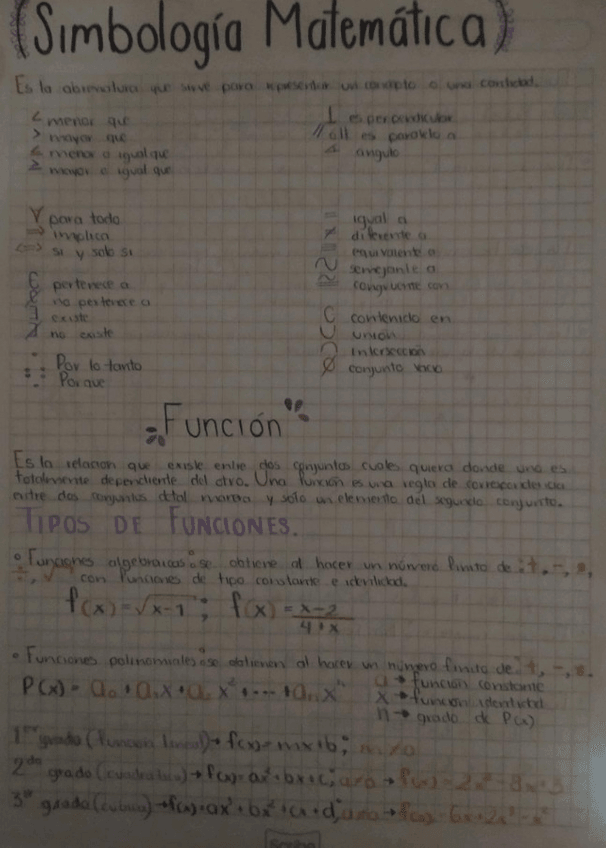 Simbología Matemática
Es la abreviatura que sirve para representar un concepto o una cantidad.
< menor que
> mayor que
≤ menor o igual que
≥ mayor o igual que
⊥ es perpendicular
// óll es paralelo a
∠ ángulo
∀ para todo
=> implica
<=> si y solo si
∈ pertenece a
∉ no pertenece a
∃ existe
∄ no existe
∴ Por lo tanto
∵ Porque
= igual a
≠ diferente a
≡ equivalente a
~ semejante a
≅ congruente con
⊂ contenido en
∪ unión
∩ Intersección
Ø conjunto vacio
Función
Es la relacion que existe entre dos conjuntos cuales quiera donde uno es
totalmente dependiente del otro. Una función es una regla de correspondencia
entre dos conjuntos detal manera y solo un elemento del segundo conjunto.
TIPOS DE FUNCIONES.
Funciones algebraicas: se obtiene al hacer un número finito de: +, -,
÷, √ con funciones de tipo constante e identidad.
f(x) = √x-1 ; f(x) = x-2
4+x
Funciones polinomiales: se obtienen al hacer un número finito de: +, -,
P(x) = a₀ + a₁x + a₂ x² + ... + aₙ xⁿ
a → función constante
x → función identidad
n → grado de P(x)
1er grado (función lineal) → f(x) = mx+b; m≠0
2do grado (cuadratica) → f(x) = ax²+bx+c; a≠0 → f(x) = 2x²-8x+3
3er grado (cubica) → f(x) = ax³+bx²+cx+d; a≠0 → f(x) =
Scribe